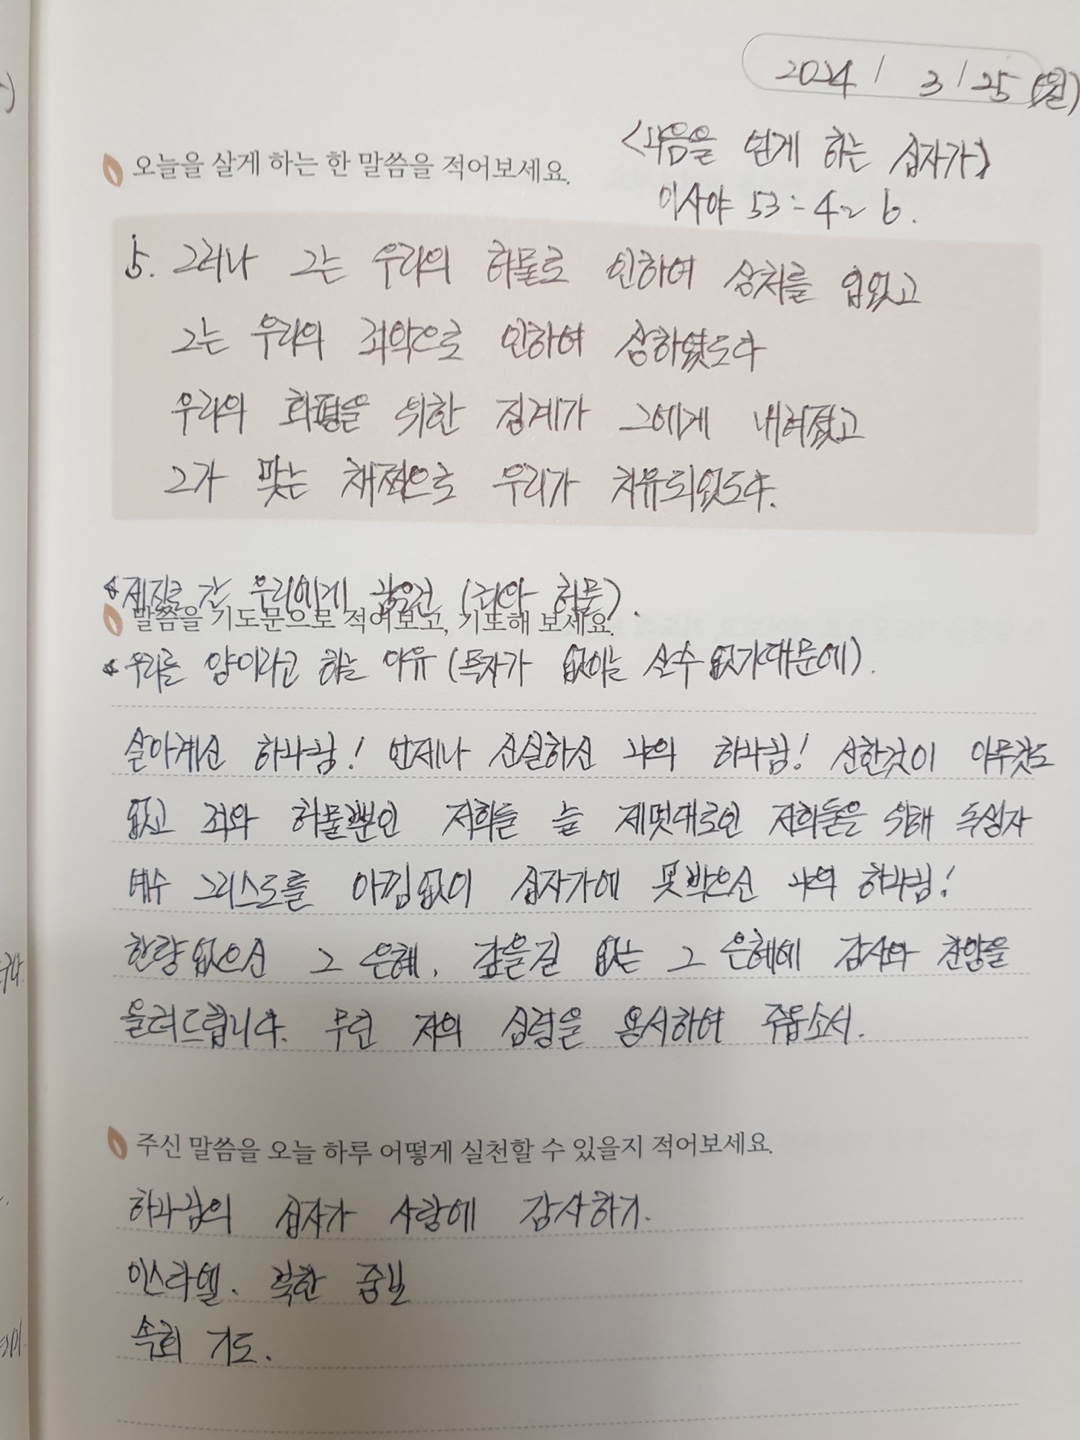 2024 / 3 / 25 (월)
오늘을 살게 하는 한 말씀을 적어보세요.
<마음을 얻게 하는 십자가>
이사야 53:4~6.
5. 그러나 그는 우리의 허물로 인하여 상처를 입었고
그는 우리의 죄악으로 인하여 상하였도다
우리의 화평을 위한 징계가 그에게 내려졌고
그가 맞는 채찍으로 우리가 치유되었도다.
제길로 간 우리에게 남은건 (죄와 허물).
말씀을 기도문으로 적어보고, 기도해 보세요.
우리를 양이라고 하는 이유 (목자가 없이는 살수 없기때문에).
살아계신 하나님! 언제나 신실하신 나의 하나님! 선한것이 아무것도
없고 죄와 허물뿐인 저희를 늘 제멋대로인 저희들을 위해 독생자
예수 그리스도를 아낌없이 십자가에 못박으신 나의 하나님!
한량없으신 그 은혜, 갚을길 없는 그 은혜에 감사와 찬양을
올려드립니다. 무딘 저의 심령을 용서하여 주옵소서.
주신 말씀을 오늘 하루 어떻게 실천할 수 있을지 적어보세요.
하나님의 십자가 사랑에 감사하기.
이스라엘. 북한 중보
속회 기도.